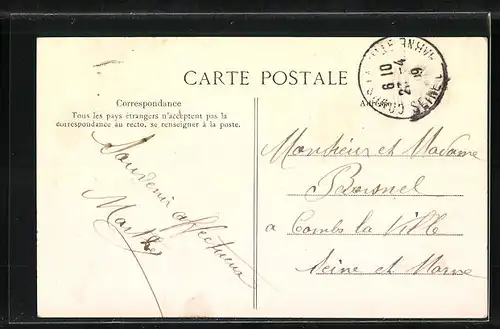 CARTE POSTALE
Correspondance
Tous les pays étrangers n'acceptent pas la
correspondance au recto, se renseigner à la poste.
Souvenir affectueux
Marthe
Monsieur et Madame
a Combs la Ville
Seine et Marne
6 10